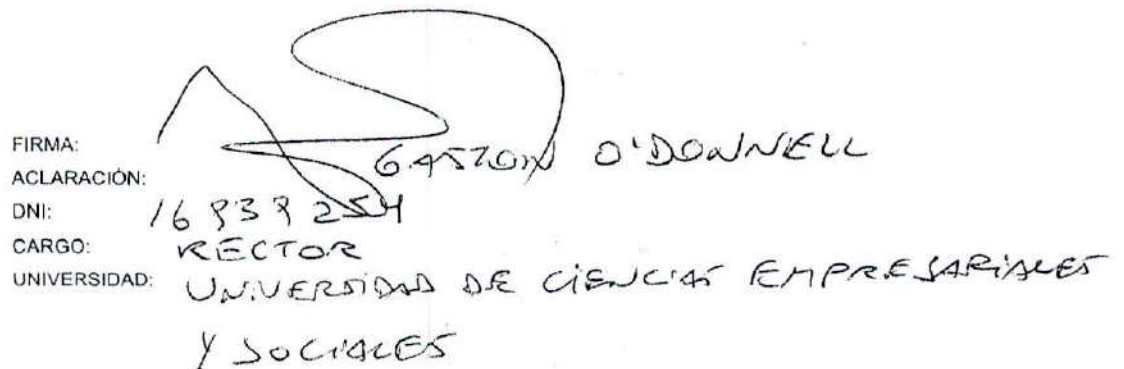 FIRMA:
ACLARACIÓN: GASTON O'DONNELL
DNI:
CARGO: RECTOR
UNIVERSIDAD: UNIVERSIDAD DE CIENCIAS EMPRESARIALES
Y SOCIALES